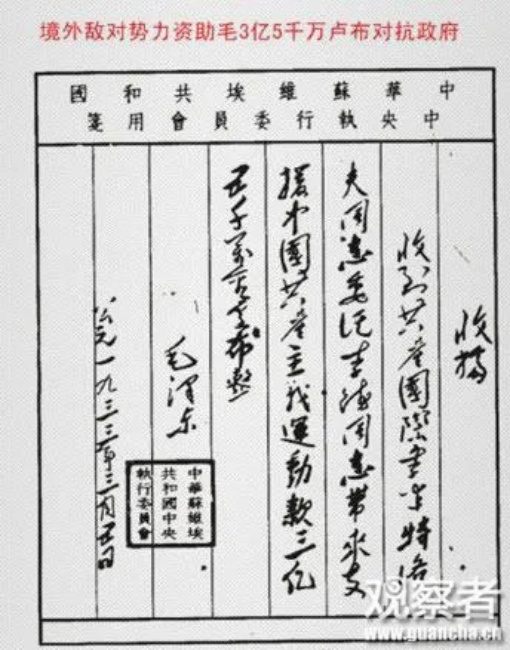 境外敌对势力资助毛3亿5千万卢布对抗政府
中華蘇維埃共和國
中央執行委員會用箋
收據
收到共產國際季米特洛
夫同志委託李德同志帶來支
援中國共產主義運動款三億
五千萬盧布整
毛澤东
公元一九三三年三月五日
中華蘇維埃
共和國中央
執行委員會
观察者
www.guancha.cn